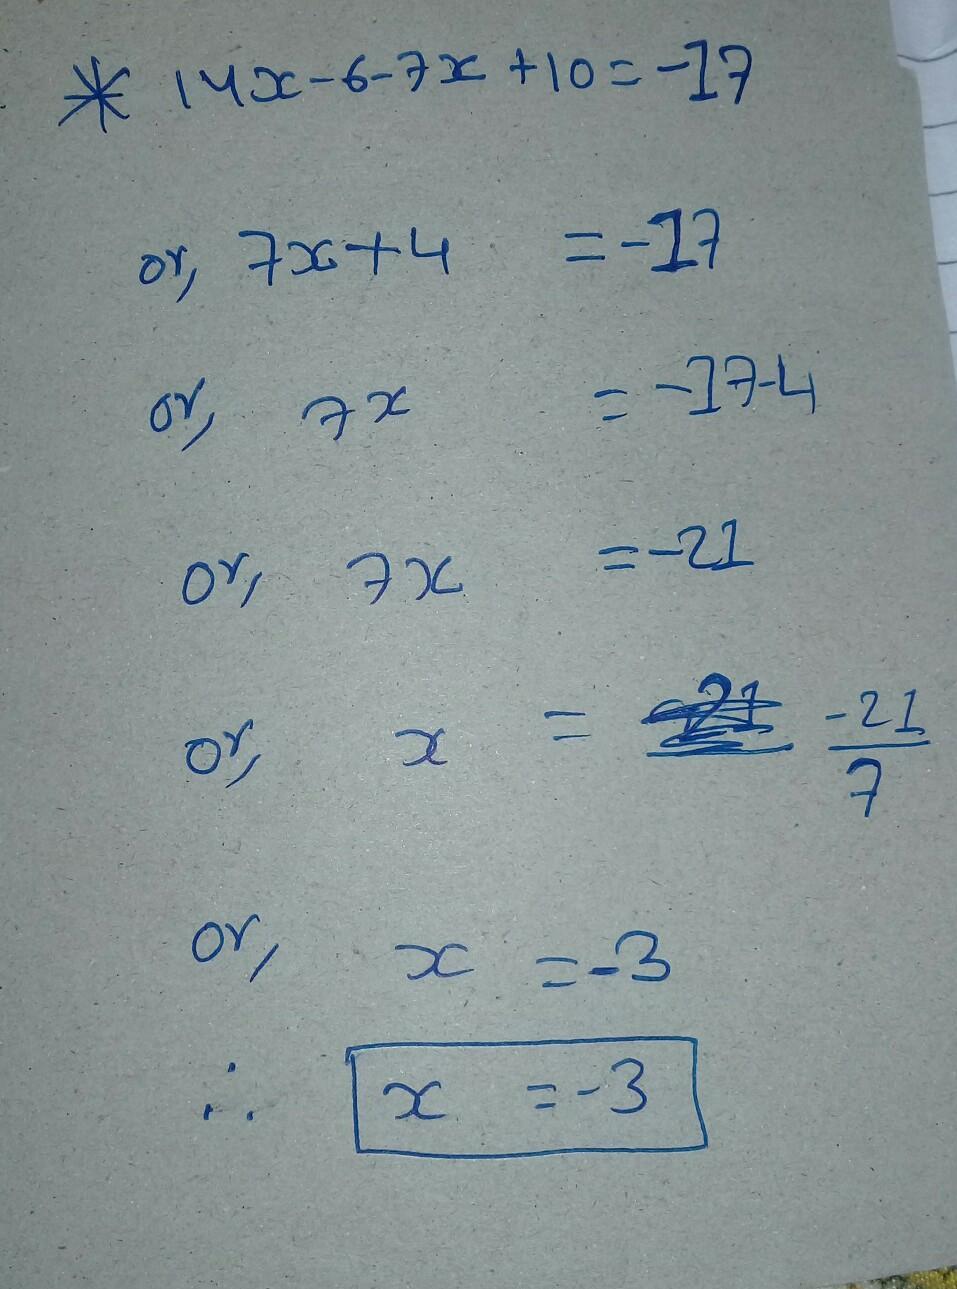 * 14x-6-7x+10=-17
or, 7x+4 =-17
or, 7x =-17-4
or, 7x =-21
or, x = -21/7
or, x =-3
∴ x =-3